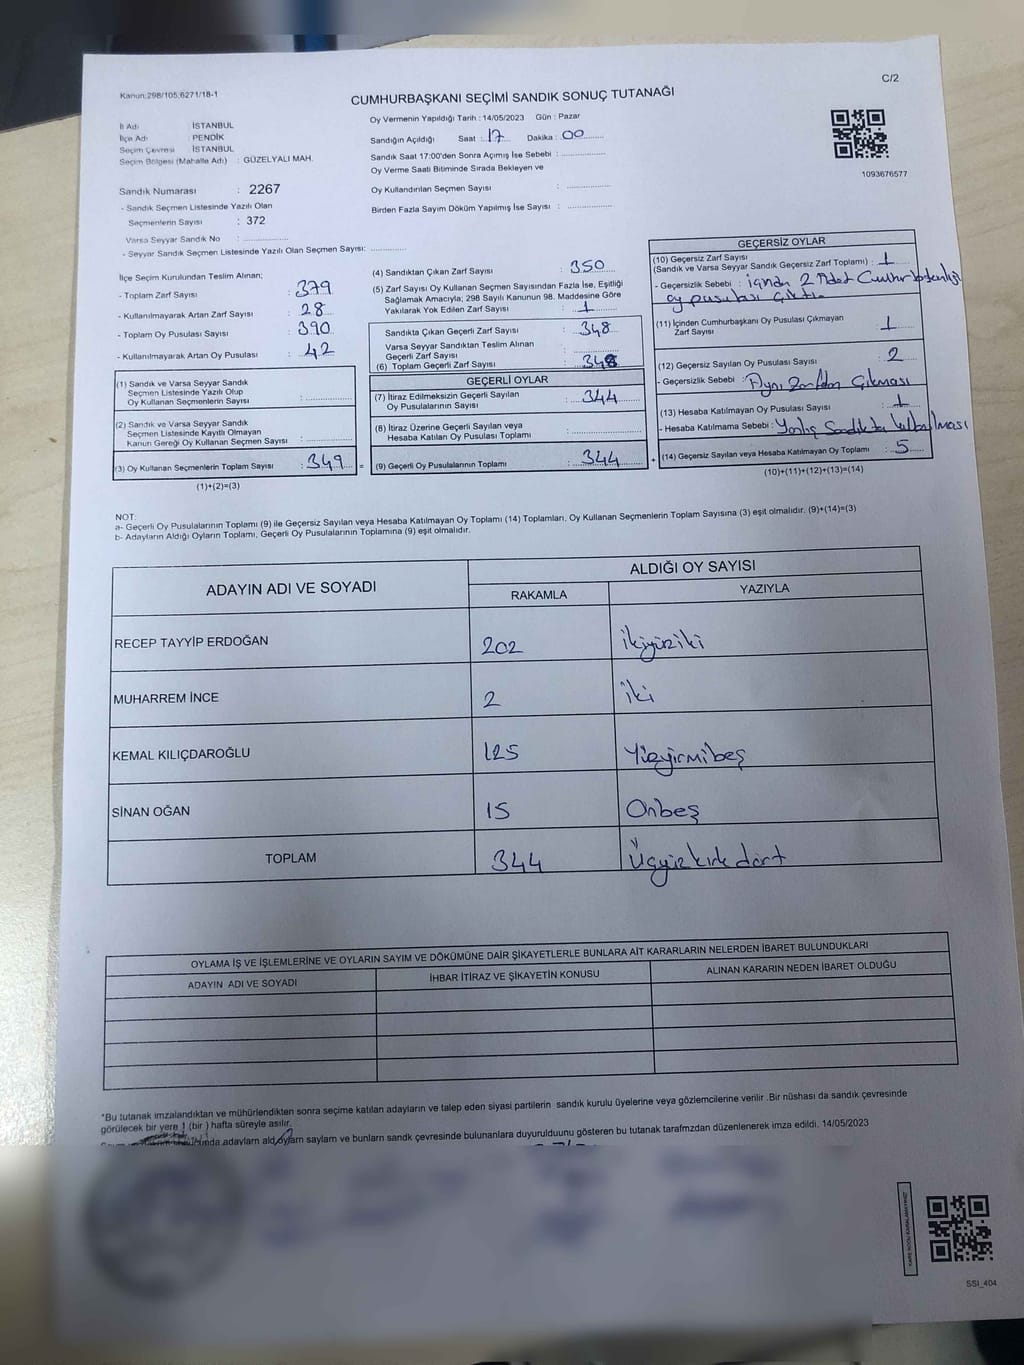 C/2
Kanun:298/105;6271/18-1
CUMHURBAŞKANI SEÇİMİ SANDIK SONUÇ TUTANAĞI
İl Adı : İSTANBUL
İlçe Adı : PENDİK
Seçim Çevresi : İSTANBUL
Seçim Bölgesi (Mahalle Adı) : GÜZELYALI MAH.
Sandık Numarası : 2267
- Sandık Seçmen Listesinde Yazılı Olan
Seçmenlerin Sayısı : 372
Varsa Seyyar Sandık No : ..............
- Seyyar Sandık Seçmen Listesinde Yazılı Olan Seçmen Sayısı: ............
Oy Vermenin Yapıldığı Tarih : 14/05/2023 Gün : Pazar
Sandığın Açıldığı Saat : 17 Dakika : 00
Sandık Saat 17:00'den Sonra Açımış İse Sebebi : ..............
Oy Verme Saati Bitiminde Sırada Bekleyen ve
Oy Kullandırılan Seçmen Sayısı : ..............
Birden Fazla Sayım Döküm Yapılmış İse Sayısı : ..............
1093676577
İlçe Seçim Kurulundan Teslim Alınan;
- Toplam Zarf Sayısı : 379
- Kullanılmayarak Artan Zarf Sayısı : 28
- Toplam Oy Pusulası Sayısı : 390
- Kullanılmayarak Artan Oy Pusulası : 42
(1) Sandık ve Varsa Seyyar Sandık
Seçmen Listesinde Yazılı Olup
Oy Kullanan Seçmenlerin Sayısı : ..............
(2) Sandık ve Varsa Seyyar Sandık
Seçmen Listesinde Kayıtlı Olmayan
Kanun Gereği Oy Kullanan Seçmen Sayısı : ..............
(3) Oy Kullanan Seçmenlerin Toplam Sayısı : 349 =
(1)+(2)=(3)
(4) Sandıktan Çıkan Zarf Sayısı : 350
(5) Zarf Sayısı Oy Kullanan Seçmen Sayısından Fazla İse, Eşitliği
Sağlamak Amacıyla; 298 Sayılı Kanunun 98. Maddesine Göre
Yakılarak Yok Edilen Zarf Sayısı : 1
Sandıkta Çıkan Geçerli Zarf Sayısı : 348
Varsa Seyyar Sandıktan Teslim Alınan
Geçerli Zarf Sayısı : ..............
(6) Toplam Geçerli Zarf Sayısı : 348
GEÇERLİ OYLAR
(7) İtiraz Edilmeksizin Geçerli Sayılan
Oy Pusulalarının Sayısı : 344
(8) İtiraz Üzerine Geçerli Sayılan veya
Hesaba Katılan Oy Pusulası Toplamı : ..............
(9) Geçerli Oy Pusulalarının Toplamı : 344 +
GEÇERSİZ OYLAR
(10) Geçersiz Zarf Sayısı
(Sandık ve Varsa Seyyar Sandık Geçersiz Zarf Toplamı) : 1
- Geçersizlik Sebebi : içinden 2 Adet Cumhurbaşkanlığı
oy pusulası çıktı
(11) İçinden Cumhurbaşkanı Oy Pusulası Çıkmayan
Zarf Sayısı : 1
(12) Geçersiz Sayılan Oy Pusulası Sayısı : 2
- Geçersizlik Sebebi : Aynı Zarftan Çıkması
(13) Hesaba Katılmayan Oy Pusulası Sayısı : 1
- Hesaba Katılmama Sebebi : Yanlış Sandıkta
(14) Geçersiz Sayılan veya Hesaba Katılmayan Oy Toplamı : 5
(10)+(11)+(12)+(13)=(14)
NOT:
a- Geçerli Oy Pusulalarının Toplamı (9) ile Geçersiz Sayılan veya Hesaba Katılmayan Oy Toplamı (14) Toplamları, Oy Kullanan Seçmenlerin Toplam Sayısına (3) eşit olmalıdır. (9)+(14)=(3)
b- Adayların Aldığı Oyların Toplamı, Geçerli Oy Pusulalarının Toplamına (9) eşit olmalıdır.
ADAYIN ADI VE SOYADI ALDIĞI OY SAYISI
RAKAMLA YAZIYLA
RECEP TAYYİP ERDOĞAN 202 ikiyüziki
MUHARREM İNCE 2 iki
KEMAL KILIÇDAROĞLU 125 Yüzyirmibeş
SİNAN OĞAN 15 Onbeş
TOPLAM 344 Üçyüz kırk dört
OYLAMA İŞ VE İŞLEMLERİNE VE OYLARIN SAYIM VE DÖKÜMÜNE DAİR ŞİKAYETLERLE BUNLARA AİT KARARLARIN NELERDEN İBARET BULUNDUKLARI
ADAYIN ADI VE SOYADI İHBAR İTİRAZ VE ŞİKAYETİN KONUSU ALINAN KARARIN NEDEN İBARET OLDUĞU
*Bu tutanak imzalandıktan ve mühürlendikten sonra seçime katılan adayların ve talep eden siyasi partilerin sandık kurulu üyelerine veya gözlemcilerine verilir .Bir nüshası da sandık çevresinde
görülecek bir yere 1 (bir ) hafta süreyle asılır.
adayların ald oyların sayların ve bunların sandk çevresinde bulunanlara duyurulduunu gösteren bu tutanak tarafmzdan düzenlenerek imza edildi. 14/05/2023
SSI_404